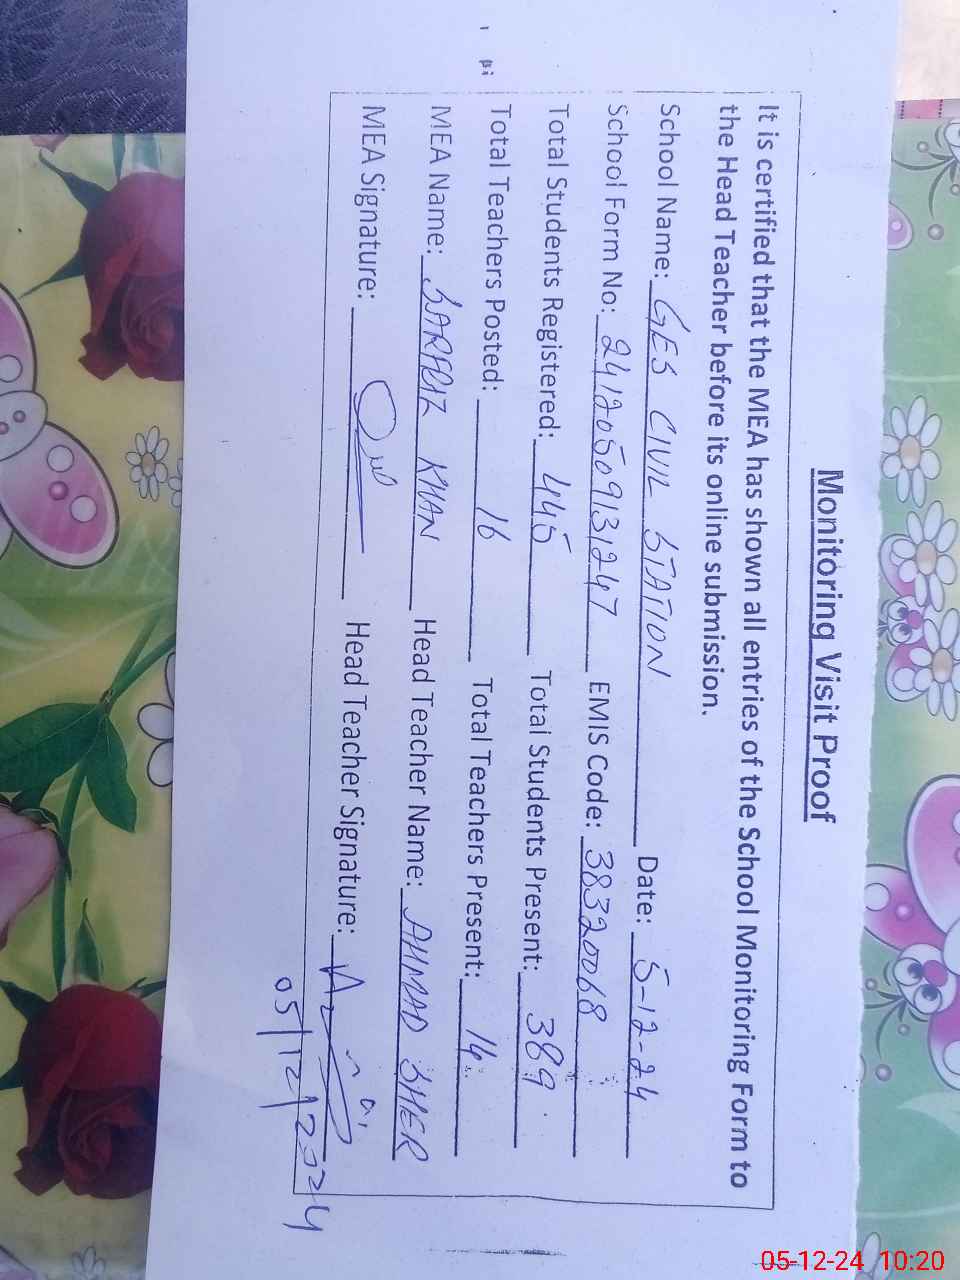 Monitoring Visit Proof
It is certified that the MEA has shown all entries of the School Monitoring Form to
the Head Teacher before its online submission.
School Name: GES CIVIL STATION Date: 5-12-24
School Form No: 24120509131247 EMIS Code: 38320068
Total Students Registered: 445 Total Students Present: 389
Total Teachers Posted: 16 Total Teachers Present: 14
MEA Name: SARFRAZ KHAN Head Teacher Name: AHMAD SHER
MEA Signature: Head Teacher Signature:
05/12/2024
05-12-24 10:20